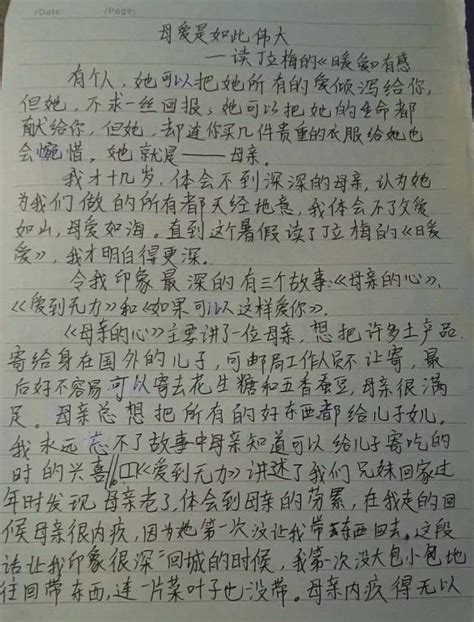 /Date: /Page:
母爱是如此伟大
——读丁立梅的《暖爱》有感
有个人，她可以把她所有的爱倾泻给你，
但她，不求一丝回报，她可以把她的生命都
献给你，但她，却连你买几件贵重的衣服给她也
会惋惜。她就是——母亲。
我才十几岁，体会不到深深的母亲，认为她
为我们做的所有都天经地意，我体会不了父爱
如山，母爱如海。直到这个暑假读了丁立梅的《暖
爱》，我才明白得更深。
令我印象最深的有三个故事：《母亲的心》、
《爱到无力》和《如果可以这样爱你》。
《母亲的心》主要讲了一位母亲，想把许多土产品
寄给身在国外的儿子，可邮局工作人员不让寄，最
后好不容易可以寄去花生糖和五香蚕豆，母亲很满
足。母亲总想把所有的好东西都给儿子女儿。
我永远忘不了故事中母亲知道可以给儿子寄吃的
时的兴喜。《爱到无力》讲述了我们兄妹回家过
年时发现母亲老了，体会到母亲的劳累，在我走的回
候母亲很内疚，因为她第一次没让我带东西回去。这段
话让我印象很深"回城的时候，我第一次没大包小包地
往回带东西，连一片菜叶子也没带。母亲内疚得无以